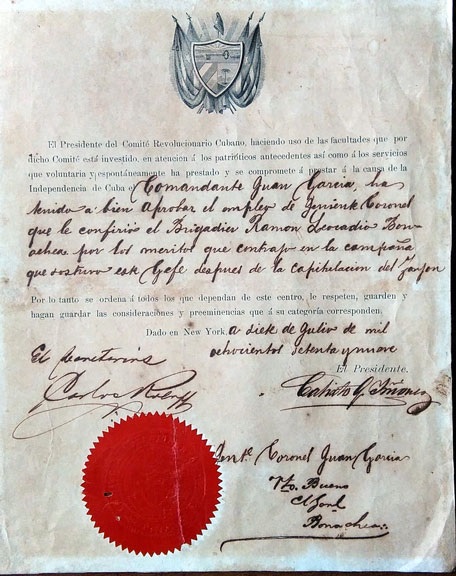 El Presidente del Comité Revolucionario Cubano, haciendo uso de las facultades que por
dicho Comité está investido, en atención á los patrióticos antecedentes así como á los servicios
que voluntaria y espontáneamente ha prestado y se compromete á prestar á la causa de la
Independencia de Cuba el Comandante Juan Garcia, ha
tenido a bien aprobar el empleo de Teniente Coronel
que le confirió el Brigadier Ramon Leocadio Bon-
achea por los meritos que contrajo en la campaña
que sostuvo este Gefe despues de la capitulacion del Zanjon
Por lo tanto se ordena á todos los que dependan de este centro, le respeten, guarden y
hagan guardar las consideraciones y preeminencias que á su categoría corresponden.
Dado en New York, a diez de Julio de mil
ochocientos setenta y nueve
El Secretario
El Presidente.
Carlos Roloff
Calixto G. Iñiguez
Tente. Coronel Juan Garcia
Vto. Bueno
El Gral
Bonachea